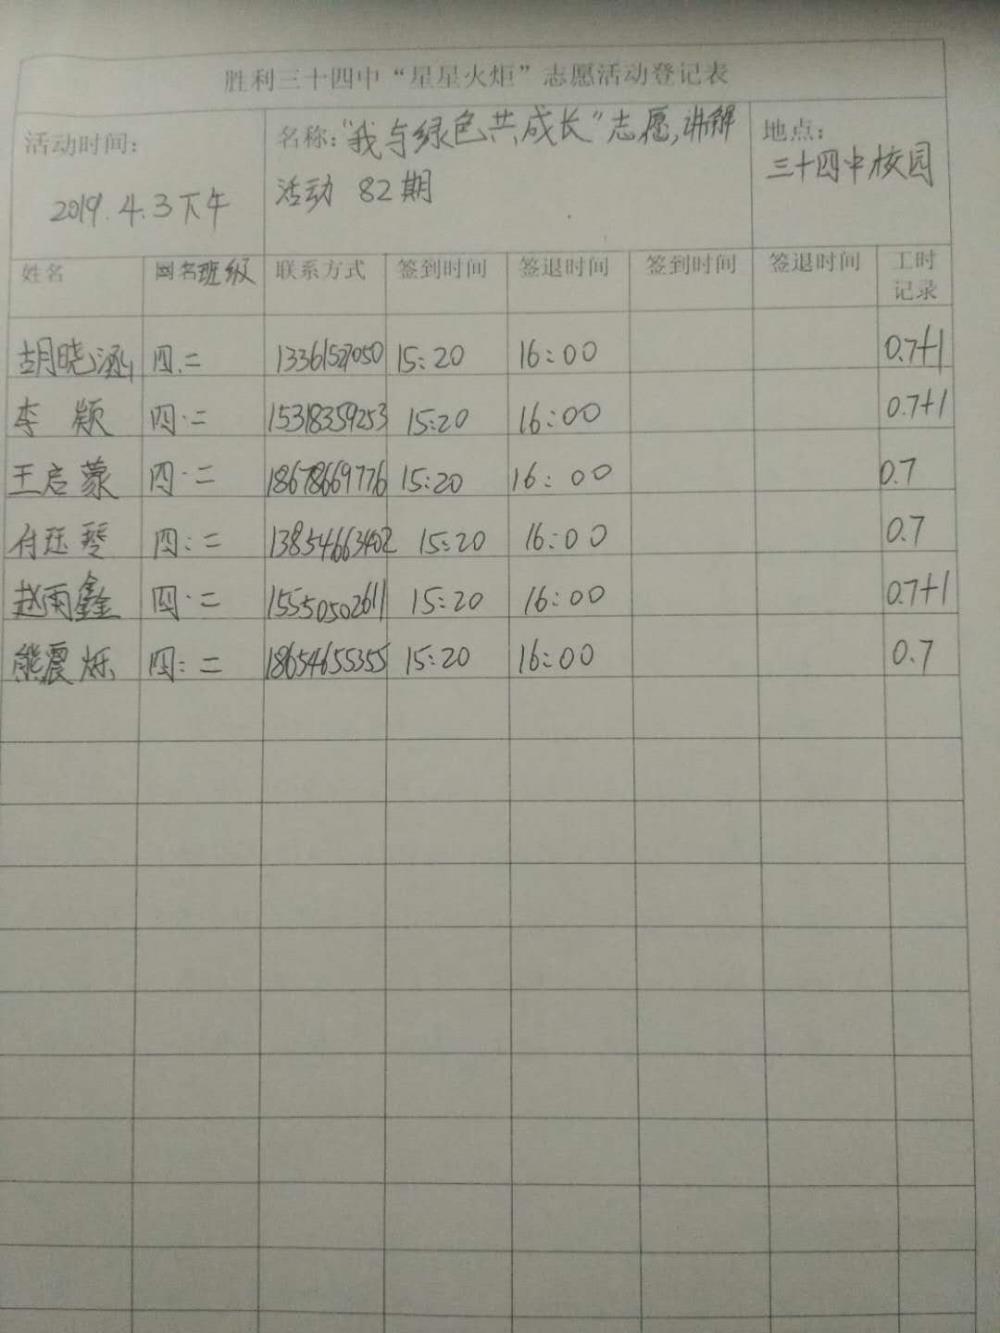 胜利三十四中“星星火炬”志愿活动登记表
活动时间： 名称：“我与绿色共成长”志愿,讲解 地点：
2019.4.3下午 活动 82期 三十四中校园
姓名 网名班级 联系方式 签到时间 签退时间 签到时间 签退时间 工时记录
胡晓涵 四.二 13361527050 15:20 16:00 0.7+1
李颖 四·二 15318359253 15:20 16:00 0.7+1
王启蒙 四·二 18678669776 15:20 16:00 0.7
付珏琴 四:二 13854663402 15:20 16:00 0.7
赵雨鑫 四·二 15550502611 15:20 16:00 0.7+1
熊震烁 四:二 18654655355 15:20 16:00 0.7